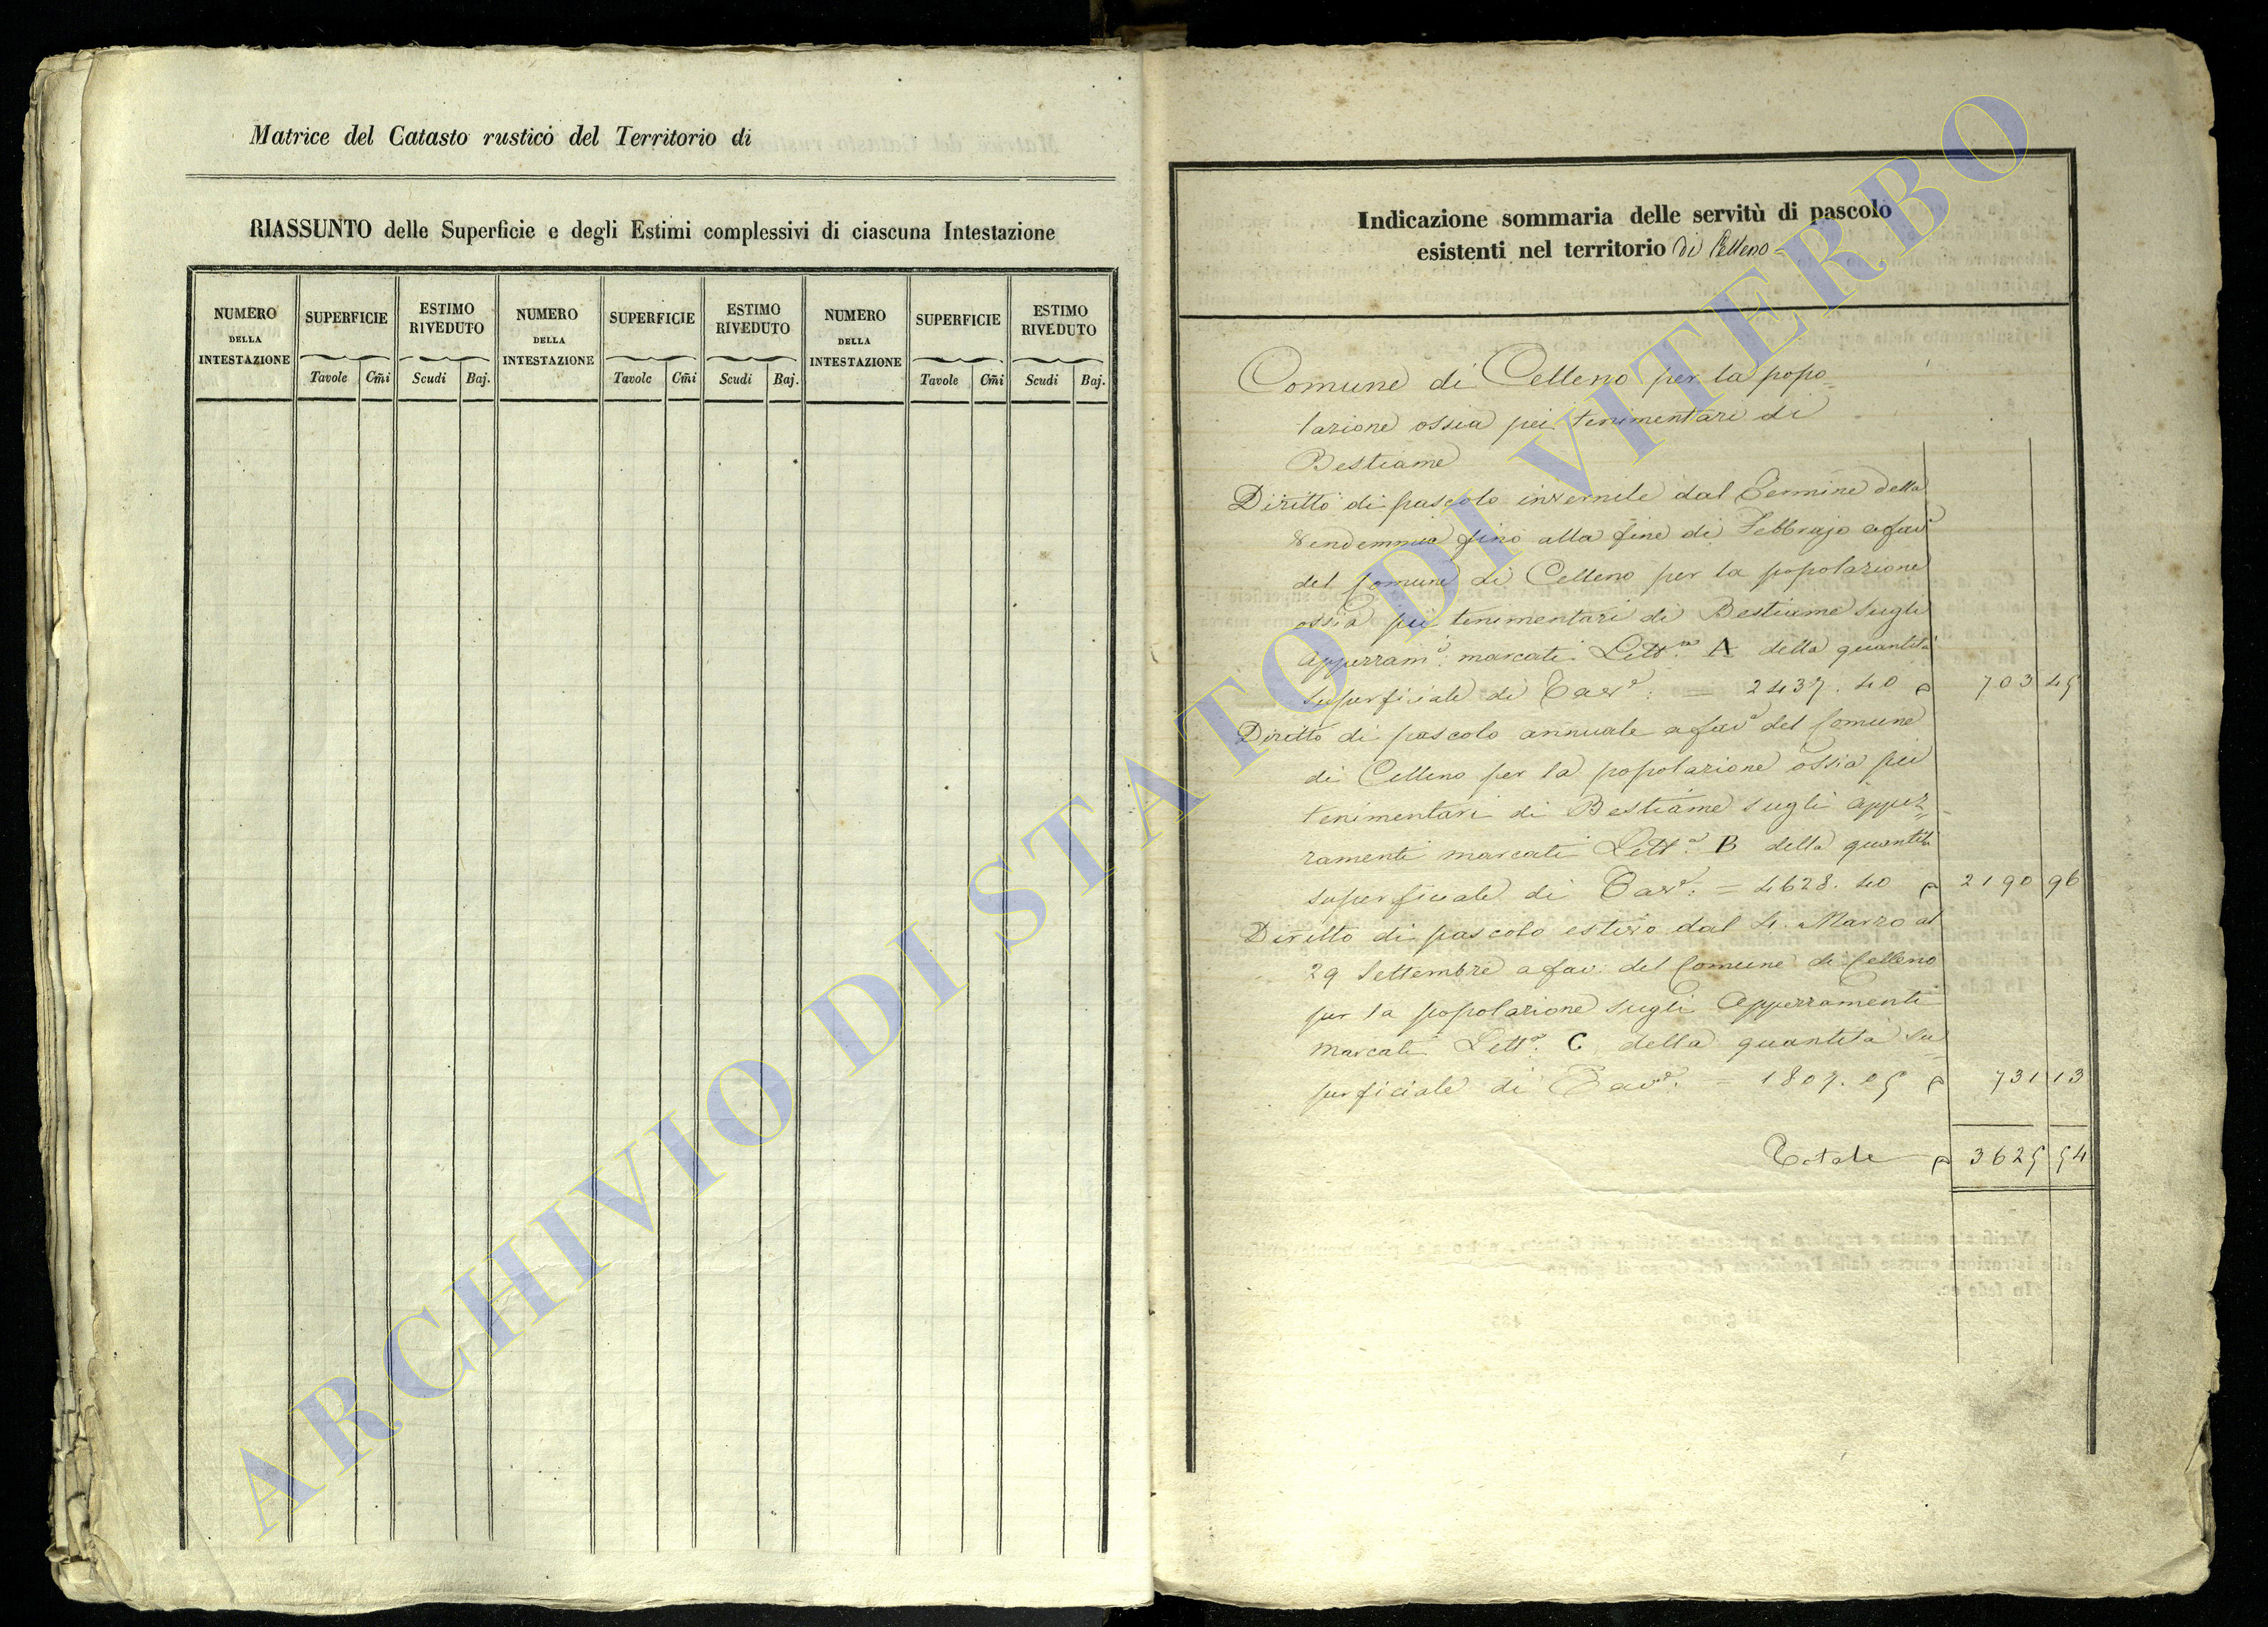 Matrice del Catasto rustico del Territorio di
RIASSUNTO delle Superficie e degli Estimi complessivi di ciascuna Intestazione
NUMERO DELLA INTESTAZIONE SUPERFICIE ESTIMO RIVEDUTO NUMERO DELLA INTESTAZIONE SUPERFICIE ESTIMO RIVEDUTO NUMERO DELLA INTESTAZIONE SUPERFICIE ESTIMO RIVEDUTO
Tavole Cm̃i Scudi Baj. Tavole Cm̃i Scudi Baj. Tavole Cm̃i Scudi Baj.
Indicazione sommaria delle servitù di pascolo
esistenti nel territorio di Celleno =
Comune di Celleno per la popo=
lazione ossia pei tenimentari di
Bestiame
Diritto di pascolo invernile dal Termine della
Vendemmia fino alla fine di Febbrajo a fav.e
del Comune di Celleno per la popolazione
ossia pei tenimentari di Bestiame sugli
Appezzam.i marcati Lett.ra A della quantità
superficiale di Tav.e: — 2437. 40 703 45
Diritto di pascolo annuale a fav.e del Comune
di Celleno per la popolazione ossia pei
tenimentari di Bestiame sugli appez=
zamenti marcati Lett.a B della quantità
superficiale di Tav.e: = 4628. 40 2190 96
Diritto di pascolo estivo dal 4. Marzo al
29 Settembre a fav: del Comune di Celleno
per la popolazione sugli Appezzamenti
marcati Lett.a C della quantità su=
perficiale di Tav.e: = 1807. 05 731 13
Totale 3625 54
ARCHIVIO DI STATO DI VITERBO